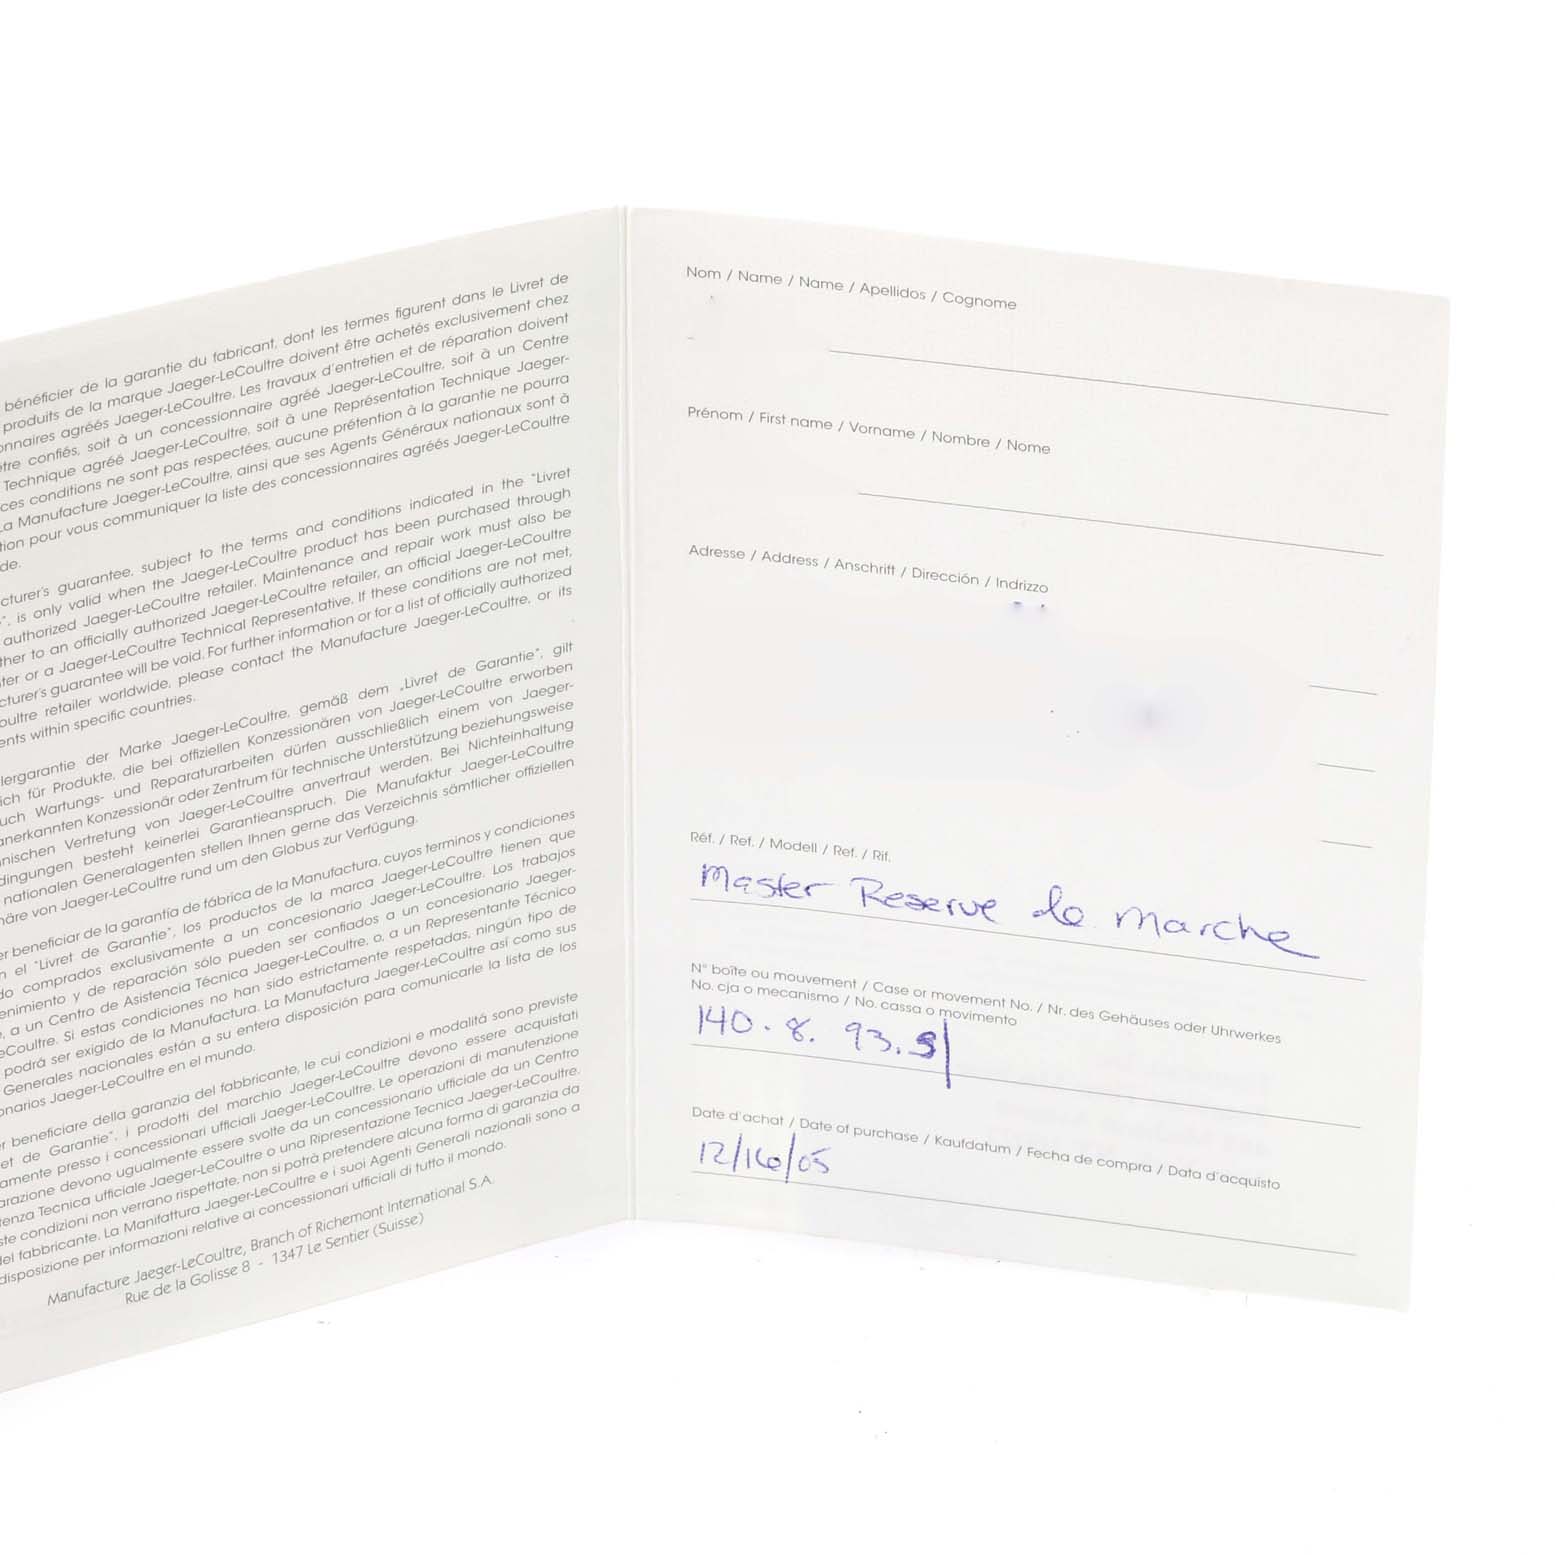 bénéficier de la garantie du fabricant, dont les termes figurent dans le Livret de
produits de la marque Jaeger-LeCoultre doivent être achetés exclusivement chez
agréés Jaeger-LeCoultre. Les travaux d'entretien et de réparation doivent
être confiés, soit à un concessionnaire agréé Jaeger-LeCoultre, soit à un Centre
Technique agréé Jaeger-LeCoultre, soit à une Représentation Technique Jaeger-
ces conditions ne sont pas respectées, aucune prétention à la garantie ne pourra
La Manufacture Jaeger-LeCoultre, ainsi que ses Agents Généraux nationaux sont à
pour vous communiquer la liste des concessionnaires agréés Jaeger-LeCoultre
de.
cturer's guarantee, subject to the terms and conditions indicated in the "Livret
", is only valid when the Jaeger-LeCoultre product has been purchased through
authorized Jaeger-LeCoultre retailer. Maintenance and repair work must also be
ther to an officially authorized Jaeger-LeCoultre retailer, an official Jaeger-LeCoultre
ter or a Jaeger-LeCoultre Technical Representative. If these conditions are not met,
cturer's guarantee will be void. For further information or for a list of officially authorized
oultre retailer worldwide, please contact the Manufacture Jaeger-LeCoultre, or its
ents within specific countries.
lergarantie der Marke Jaeger-LeCoultre, gemäß dem „Livret de Garantie", gilt
ich für Produkte, die bei offiziellen Konzessionären von Jaeger-LeCoultre erworben
uch Wartungs- und Reparaturarbeiten dürfen ausschließlich einem von Jaeger-
anerkannten Konzessionär oder Zentrum für technische Unterstützung beziehungsweise
nischen Vertretung von Jaeger-LeCoultre anvertraut werden. Bei Nichteinhaltung
dingungen besteht keinerlei Garantieanspruch. Die Manufaktur Jaeger-LeCoultre
nationalen Generalagenten stellen Ihnen gerne das Verzeichnis sämtlicher offiziellen
näre von Jaeger-LeCoultre rund um den Globus zur Verfügung.
er beneficiar de la garantía de fábrica de la Manufactura, cuyos terminos y condiciones
en el "Livret de Garantie", los productos de la marca Jaeger-LeCoultre tienen que
do comprados exclusivamente a un concesionario Jaeger-LeCoultre. Los trabajos
enimiento y de reparación sólo pueden ser confiados a un concesionario Jaeger-
, a un Centro de Asistencia Técnica Jaeger-LeCoultre, o, a un Representante Técnico
eCoultre. Si estas condiciones no han sido estrictamente respetadas, ningún tipo de
podrá ser exigido de la Manufactura. La Manufactura Jaeger-LeCoultre así como sus
Generales nacionales están a su entera disposición para comunicarle la lista de los
onarios Jaeger-LeCoultre en el mundo.
er beneficiare della garanzia del fabbricante, le cui condizioni e modalitá sono previste
et de Garantie", i prodotti del marchio Jaeger-LeCoultre devono essere acquistati
amente presso i concessionari ufficiali Jaeger-LeCoultre. Le operazioni di manutenzione
arazione devono ugualmente essere svolte da un concessionario ufficiale da un Centro
tenza Tecnica ufficiale Jaeger-LeCoultre o una Ripresentazione Tecnica Jaeger-LeCoultre.
ste condizioni non verrano rispettate, non si potrà pretendere alcuna forma di garanzia da
del fabbricante. La Manifattura Jaeger-LeCoultre e i suoi Agenti Generali nazionali sono a
disposizione per informazioni relative ai concessionari ufficiali di tutto il mondo.
Manufacture Jaeger-LeCoultre, Branch of Richemont International S.A.
Rue de la Golisse 8 - 1347 Le Sentier (Suisse)
Nom / Name / Name / Apellidos / Cognome
Prénom / First name / Vorname / Nombre / Nome
Adresse / Address / Anschrift / Dirección / Indrizzo
Réf. / Ref. / Modell / Ref. / Rif.
Master Reserve de Marche
N° boîte ou mouvement / Case or movement No. / Nr. des Gehäuses oder Uhrwerkes
No. cja o mecanismo / No. cassa o movimento
140.8.93.S
Date d'achat / Date of purchase / Kaufdatum / Fecha de compra / Data d'acquisto
12/16/05